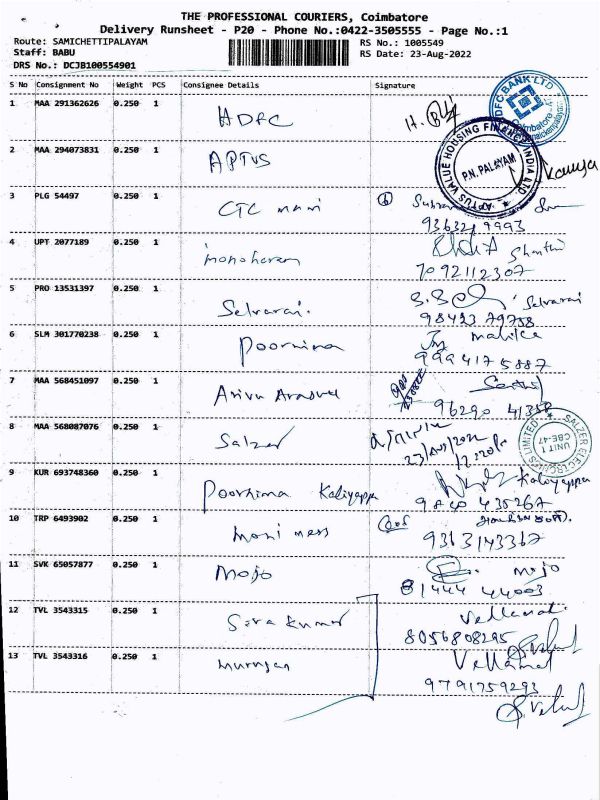 THE PROFESSIONAL COURIERS, Coimbatore
Delivery Runsheet - P20 - Phone No.:0422-3505555 - Page No.:1
Route: SAMICHETTIPALAYAM RS No.: 1005549
Staff: BABU RS Date: 23-Aug-2022
DRS No.: DCJB100554901
S No Consignment No Weight PCS Consignee Details Signature
1 MAA 291362626 0.250 1 HDFC
HDFC BANK LTD
Coimbatore
2 MAA 294073831 0.250 1 APTUS
APTUS VALUE HOUSING FINANCE INDIA LTD.
P.N. PALAYAM
3 PLG 54497 0.250 1 CTC mani
4 UPT 2077189 0.250 1 manoharan Shanthi
7092112307
5 PRO 13531397 0.250 1 Selvaraj. Selvaraj
6 SLM 301770238 0.250 1 Poornima
9994175887
7 MAA 568451097 0.250 1
8 MAA 568087076 0.250 1 Salzer
SALZER ELECTRONICS LIMITED
UNIT 1
CBE-47
9 KUR 693748360 0.250 1 Poornima Kaliyappa Kaliyappa
10 TRP 6493902 0.250 1 Mani mess
9363143367
11 SVK 65057877 0.250 1 Mojo Mojo
81444 44003
12 TVL 3543315 0.250 1 Siva Kumar
8056808295
13 TVL 3543316 0.250 1 Murugan
9791759293